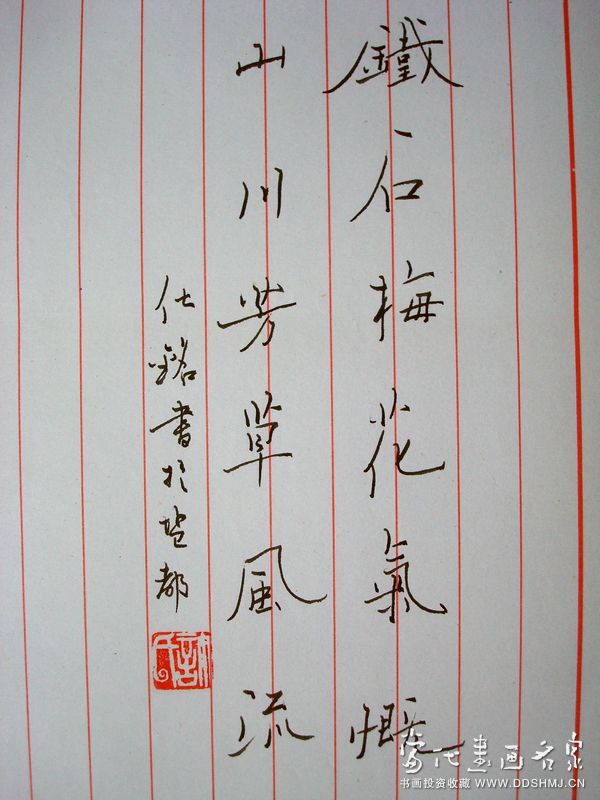 鐵石梅花氣慨
山川芳草風流
仕銘書於塩都
當代書画名家
书画投资收藏 WWW.DDSHMJ.CN